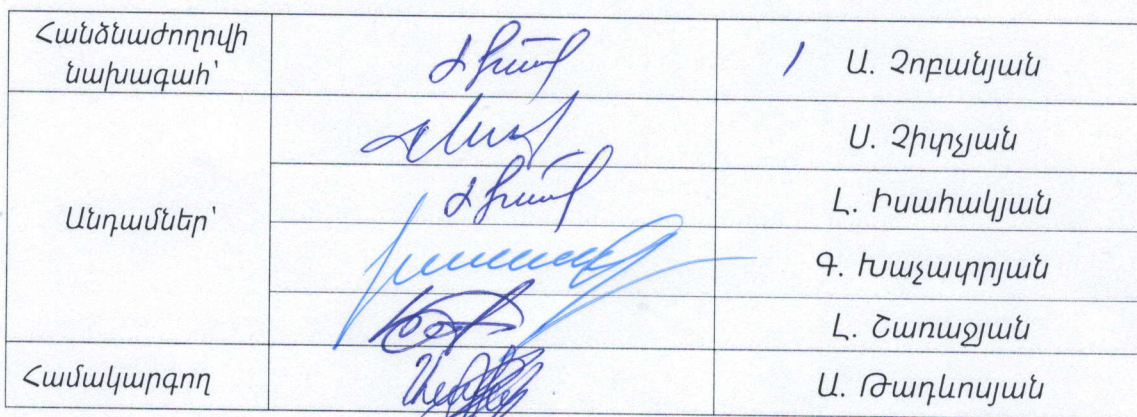 Հանձնաժողովի
նախագահ՝
Ա. Չոբանյան
Անդամներ՝
Ս. Չիլոյան
Լ. Իսահակյան
Գ. Խաչատրյան
Լ. Շառաջյան
Համակարգող
Ա. Թադևոսյան